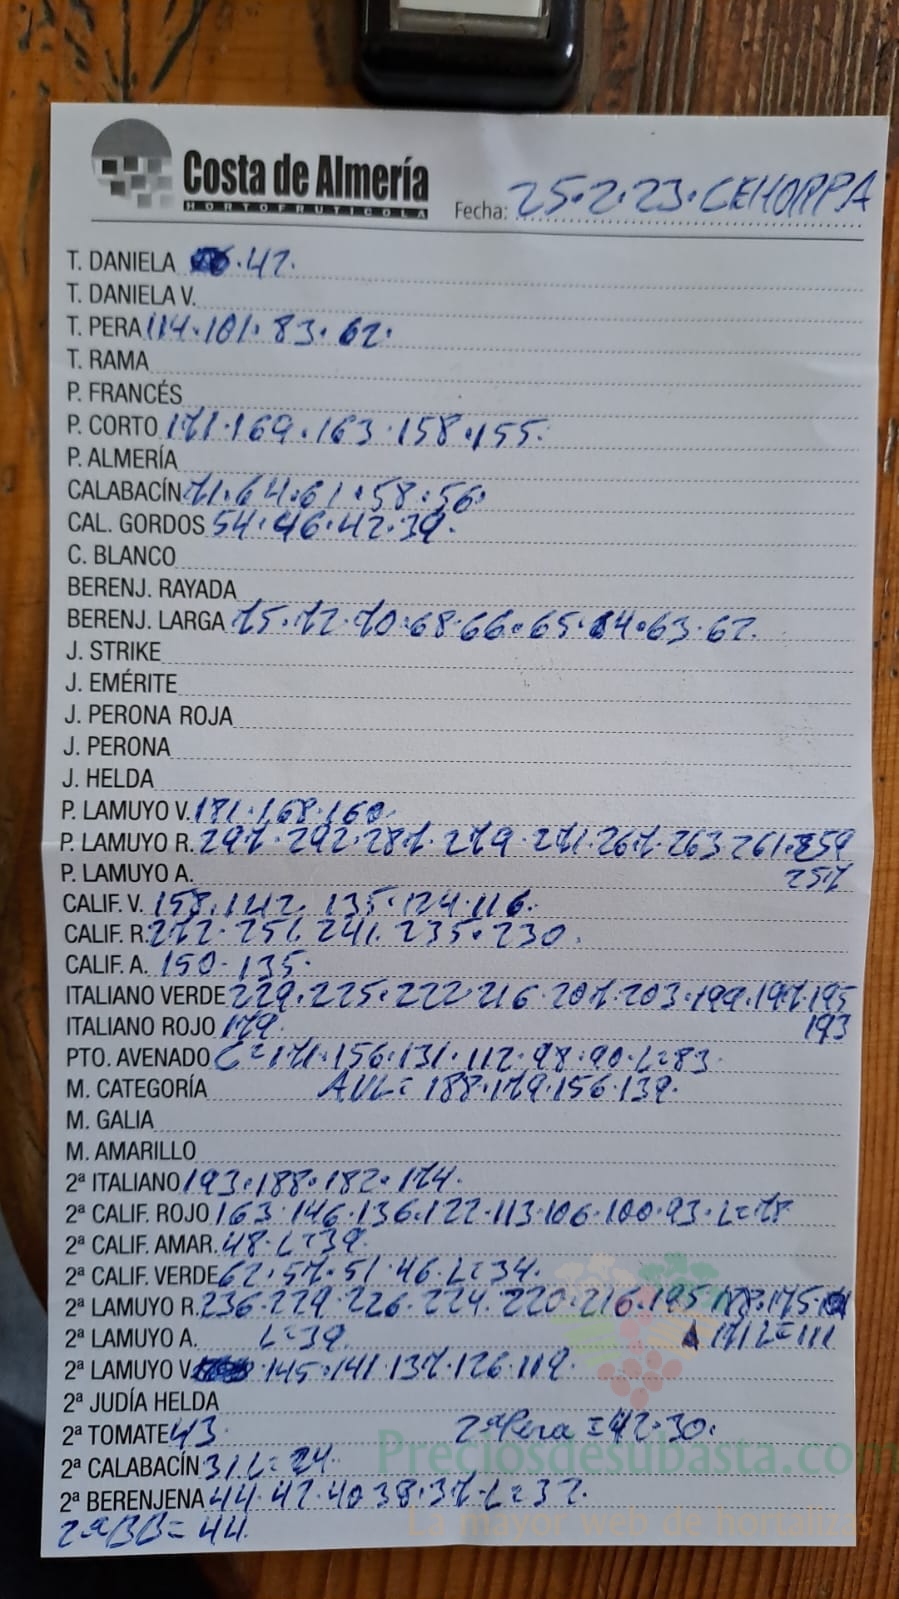 Costa de Almería
HORTOFRUTICOLA
Fecha: 25·2·23·CEHORPA
T. DANIELA ·42·
T. DANIELA V.
T. PERA 114·101·83·62·
T. RAMA
P. FRANCÉS
P. CORTO 171·169·163·158·155·
P. ALMERÍA
CALABACÍN 71·64·61·58·56·
CAL. GORDOS 54·46·42·39·
C. BLANCO
BERENJ. RAYADA
BERENJ. LARGA 75·72·70·68·66·65·64·63·62·
J. STRIKE
J. EMÉRITE
J. PERONA ROJA
J. PERONA
J. HELDA
P. LAMUYO V. 181·168·160·
P. LAMUYO R. 297·292·287·279·271·267·263 261·259
P. LAMUYO A. 257
CALIF. V. 158·142·135·124·116·
CALIF. R. 272·251·241·235·230·
CALIF. A. 150·135·
ITALIANO VERDE 229·225·222·216·207·203·199·197·195
ITALIANO ROJO 179· 193
PTO. AVENADO C=171·156·131·112·98·90·L=83·
M. CATEGORÍA AVL=188·179·156·139·
M. GALIA
M. AMARILLO
2ª ITALIANO 193·188·182·174·
2ª CALIF. ROJO 163·146·136·122·113·106·100·93·L=78
2ª CALIF. AMAR. 48·L=39·
2ª CALIF. VERDE 62·57·51·46·L=34·
2ª LAMUYO R. 236·229·226·224·220·216·195·188·175·
2ª LAMUYO A. L=39· 171 L=111
2ª LAMUYO V. 145·141·137·126·119·
2ª JUDÍA HELDA
2ª TOMATE 43· 2ª Pera=42·30·
2ª CALABACÍN 31 L=24·
2ª BERENJENA 44·42·40 38·37·L=32·
2ª BB=44·
Preciosdesubasta.com
La mayor web de hortaliza